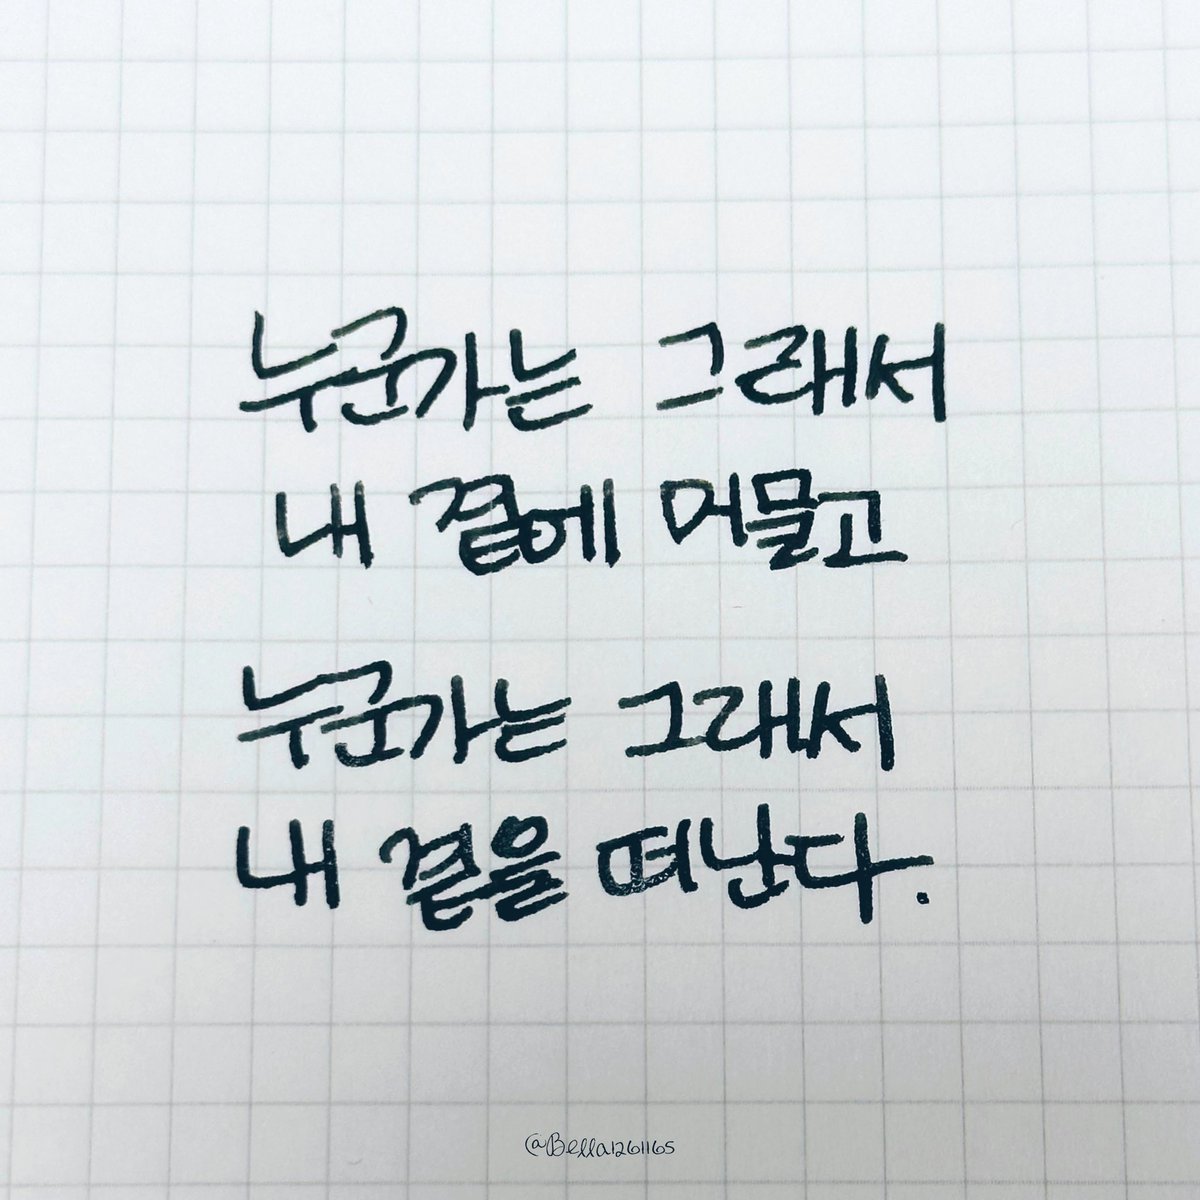 누군가는 그래서
내 곁에 머물고
누군가는 그래서
내 곁을 떠난다.
@Bella1261165